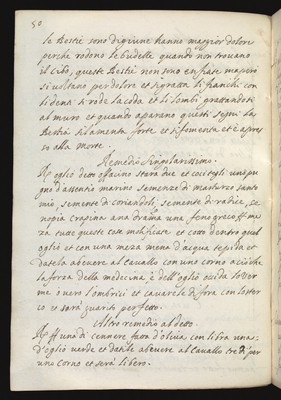 50
le Bestie sono digiune hanno maggior dolore
perche rodono le budelle quando non trouano
il cibo, queste Bestie non sono enfiate ma però
si uoltano per dolore et si gratta li fianchi con
li denti si rode la coda et li lombi grattandosi
al muro et quando aparano questi segni La
Bestia si lamenta forte et si fomenta et è apres
so alla morte.
Remedio Singularissimo.
oglio detto stara due et cui tegli un pu
gno d'assentio marino semenze di marturzo santo
mio, semente di coriandoli, semente di radice, se
nopia crapina ana drama una fenogreco mi
za tutte queste cose et cotto dentro quel
oglio et con una meza mena d'acqua tepida et
datela abeuere al Cauallo con uno corno acioche
la forza della medecina è dell'oglio ucida lo Ver
me ò uero l'ombrici et cauarete di fora con lo ster
co et sarà guerito perfetto.
Altro remedio al detto.
uno di cennere fatta d'oliua con libra una
d'oglio uerde et datile abeuere al Cauallo tre dì per
uno Corno et serà libero.